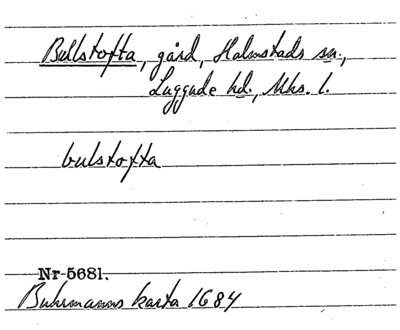 Bullstofta, gård, Halmstads sn.,
Luggude hd., Mhs. l.
bulstofta
Nr 5681.
Buhrmanns karta 1684